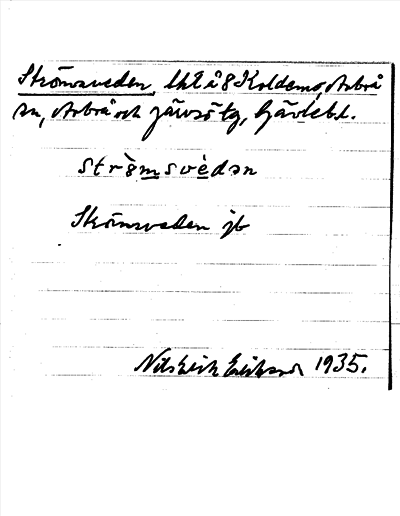 Strömsveden, lht å 8 Koldemo, Arbrå
sn, Arbrå och Järvsö tg, Gävlebl.
strö̀msvèdən
Strömsveden jb
Nils Erik Eriksson 1935.